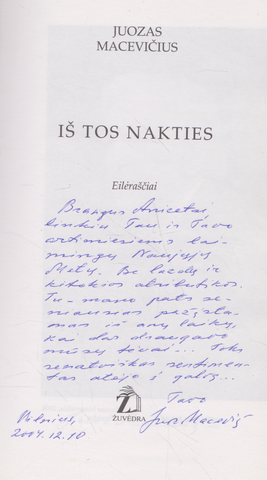 JUOZAS
MACEVIČIUS
IŠ TOS NAKTIES
Eilėraščiai
Brangus Anicetai
linkiu Tau ir Tavo
artimiesiems lai-
mingų Naujųjų
Metų. Be lazdų ir
kitokios atributikos.
Tu – mano pats se-
niausias pažįsta-
mas iš anų laikų,
kai dar draugavo
mūsų tėvai... Toks
senatviškas sentimen-
tas atėjo į galvą...
Tavo
Vilnius,
2004.12.10
Juoz Macevič
ŽUVĖDRA